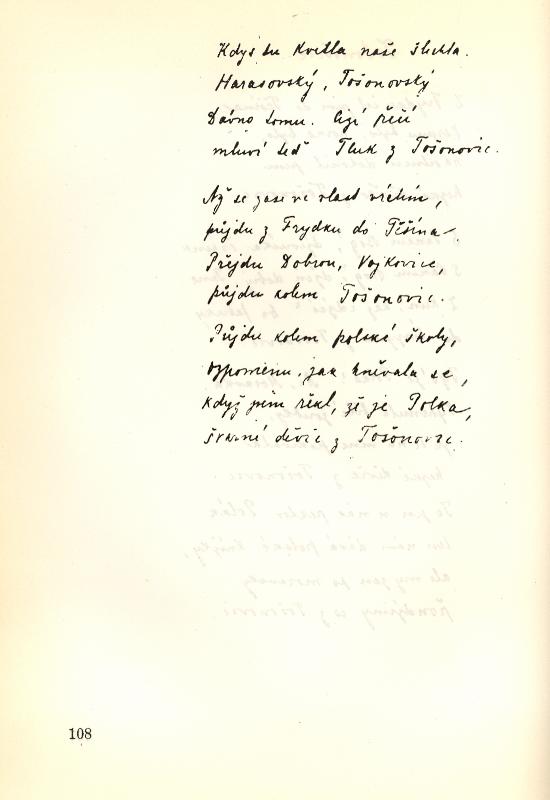 Kdys tu kvetla naše šlechta.
Harasovský, Tošonovský
Dávno tomu. Cizí řečí
mluví teď Tluk z Tošonovic.
Až se zase ve vlast vrátím,
půjdu z Frydku do Těšína.
Přejdu Dobrou, Vojkovice,
půjdu kolem Tošonovic.
Půjdu kolem polské školy,
vzpomenu, jak hněvala se,
když jsem řekl, že je Polka,
švarné děvče z Tošonovic.
108